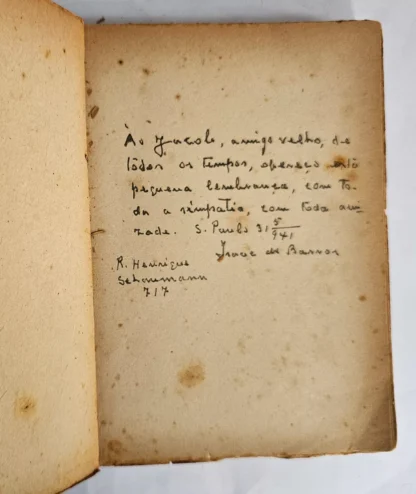 Ao Jacob, amigo velho, de
tôdos os tempos, ofereço esta
pequena lembrança, com to-
da a simpatia, com toda ami-
zade. S. Paulo 31 5/941
de Barros
R. Henrique
Schaumann
717